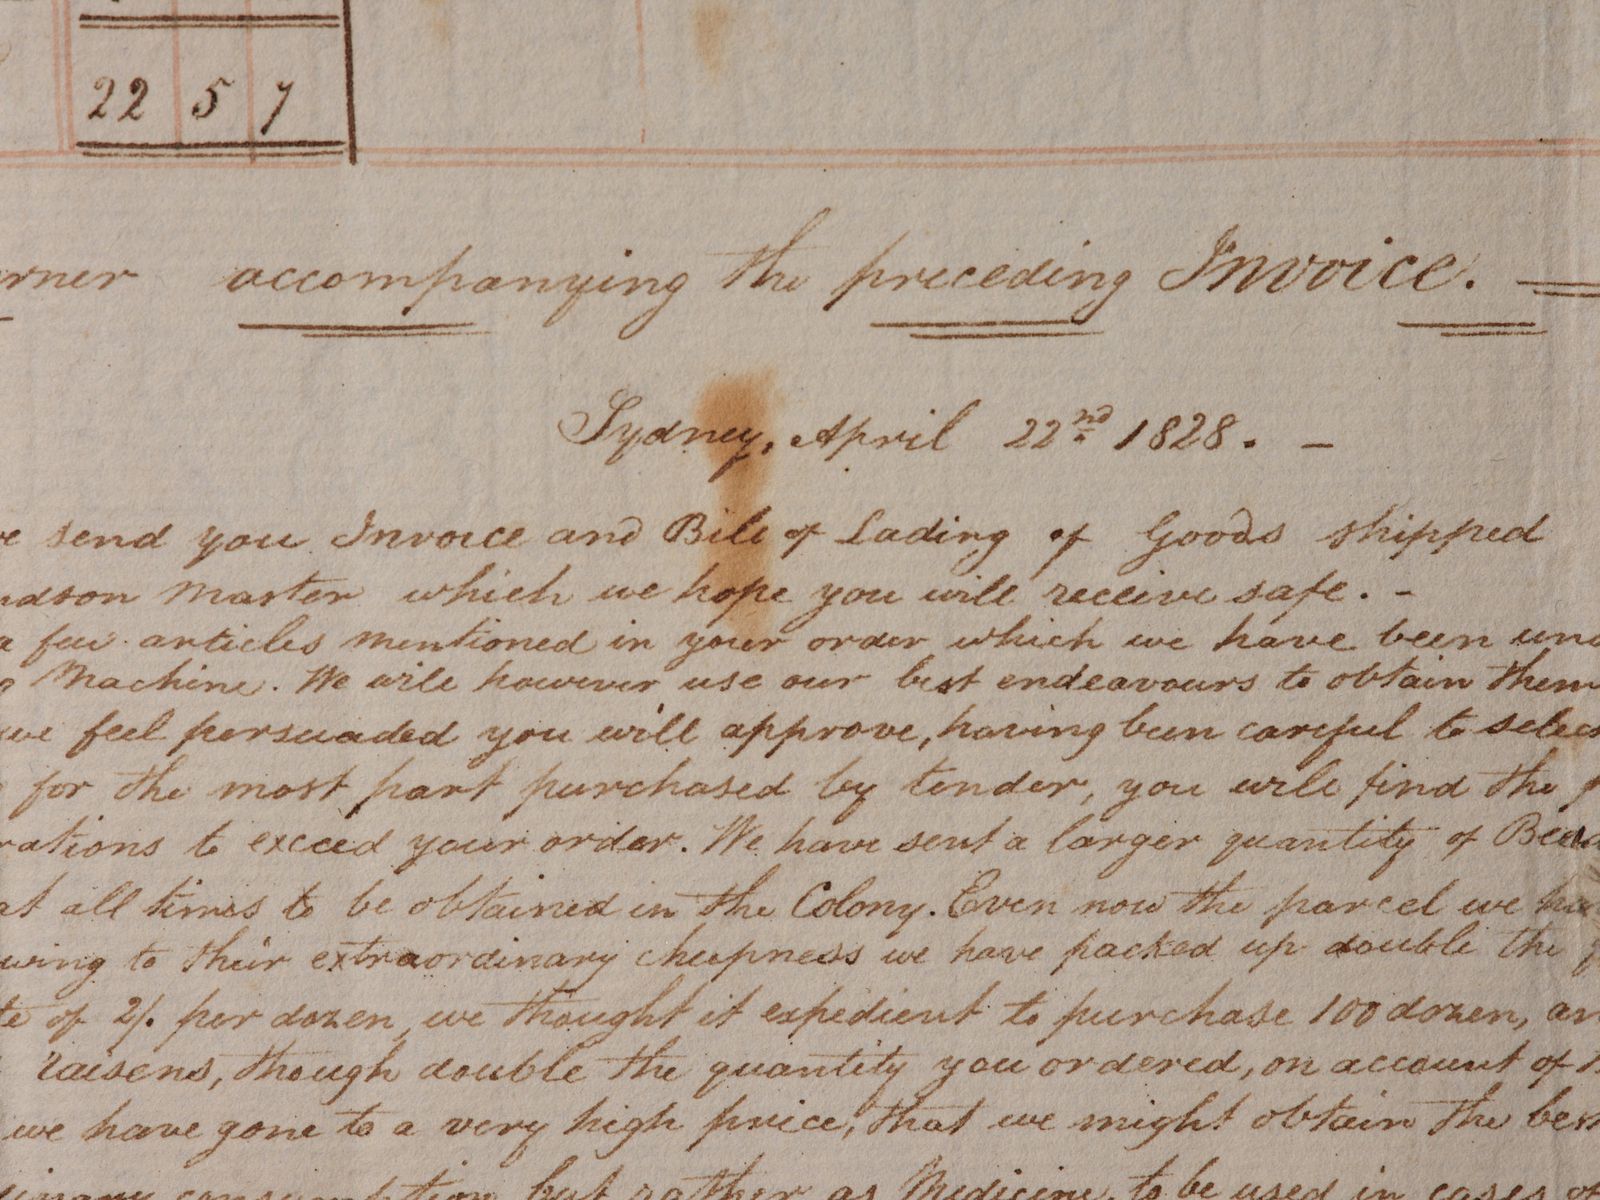 22 5 7
rner accompanying the preceding Invoice.
Sydney, April 22nd 1828. –
we send you Invoice and Bill of Lading of Goods shipped
udson Master which we hope you will receive safe. –
a few articles mentioned in your order which we have been una
g Machine. We will however use our best endeavours to obtain them
we feel persuaded you will approve, having been careful to selec
for the most part purchased by tender, you will find the
rations to exceed your order. We have sent a larger quantity of
at all times to be obtained in the Colony. Even now the parcel we ha
wing to their extraordinary cheapness we have packed up double the
te of 2/. per dozen, we thought it expedient to purchase 100 dozen, an
raisens, though double the quantity you ordered, on account of
we have gone to a very high price, that we might obtain the bes
dinary consumption but rather as Medicine, to be used in cases of